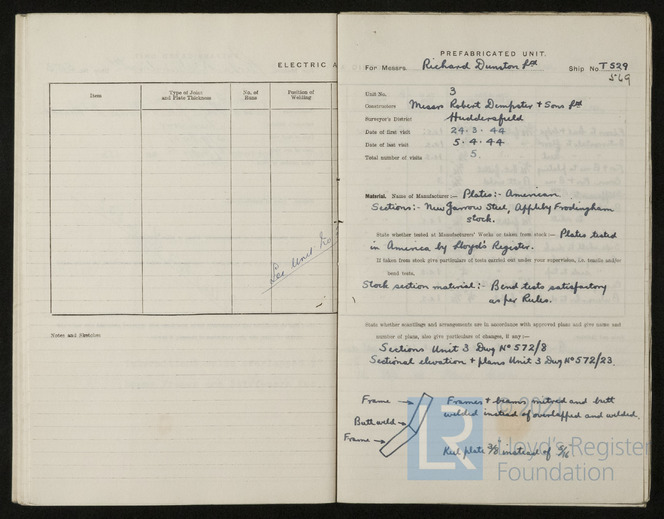 ELECTRIC A
Item
Type of Joint
and Plate Thickness
No. of
Runs
Position of
Welding
See Unit No
Notes and Sketches
PREFABRICATED UNIT.
For Messrs. Richard Dunston Ltd Ship No. T 529
569
Unit No. 3
Constructors Messrs Robert Dempster & Sons Ltd
Surveyor's District Huddersfield
Date of first visit 24.3.44
Date of last visit 5.4.44
Total number of visits 5.
Material. Name of Manufacturer:— Plates:- American
Sections:- New Jarrow Steel, Appleby Frodingham
stock.
State whether tested at Manufacturers' Works or taken from stock:— Plates tested
in America by Lloyd's Register.
If taken from stock give particulars of tests carried out under your supervision, i.e. tensile and/or
bend tests.
Stock section material:- Bend tests satisfactory
as per Rules.
State whether scantlings and arrangements are in accordance with approved plans and give name and
number of plans, also give particulars of changes, if any:—
Sections Unit 3 Dwg No 572/8
Sectional elevation & plans Unit 3 Dwg No 572/23
Frame
Butt weld
Frame
Frames & beams mitred and butt
welded instead of overlapped and welded.
Keel plate 3/8" instead of 5/16
© 202
LR
Lloyd's Register
Foundation